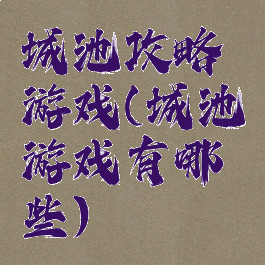 城池攻略
游戏(城池
游戏有哪
些)